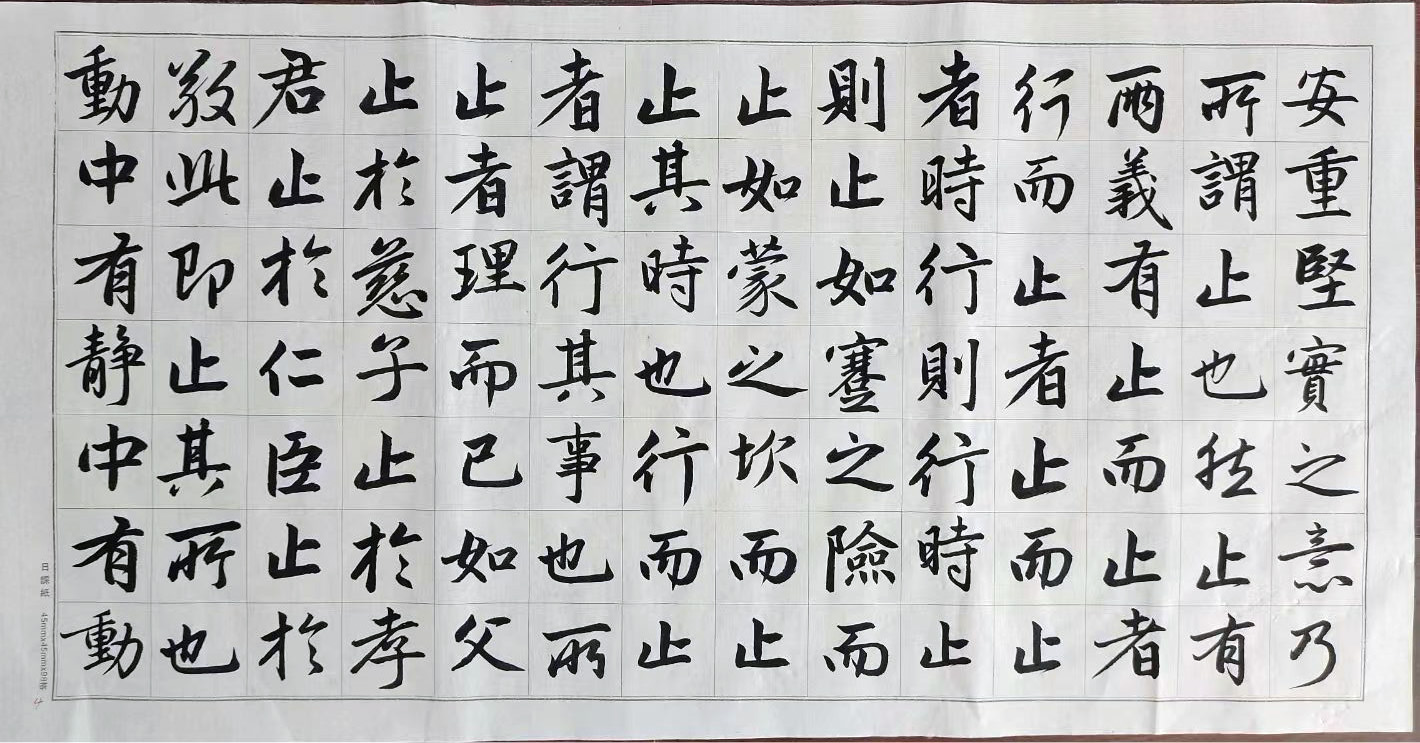 安重堅實之意乃
所謂止也然止有
兩義有止而止者
行而止者止而止
者時行則行時止
則止如蹇之險而
止如蒙之坎而止
止其時也行而止
者謂行其事也所
止者理而已如父
止於慈子止於孝
君止於仁臣止於
敬此即止其所也
動中有静中有動
日誠紙 45mmx45mmx98格
4